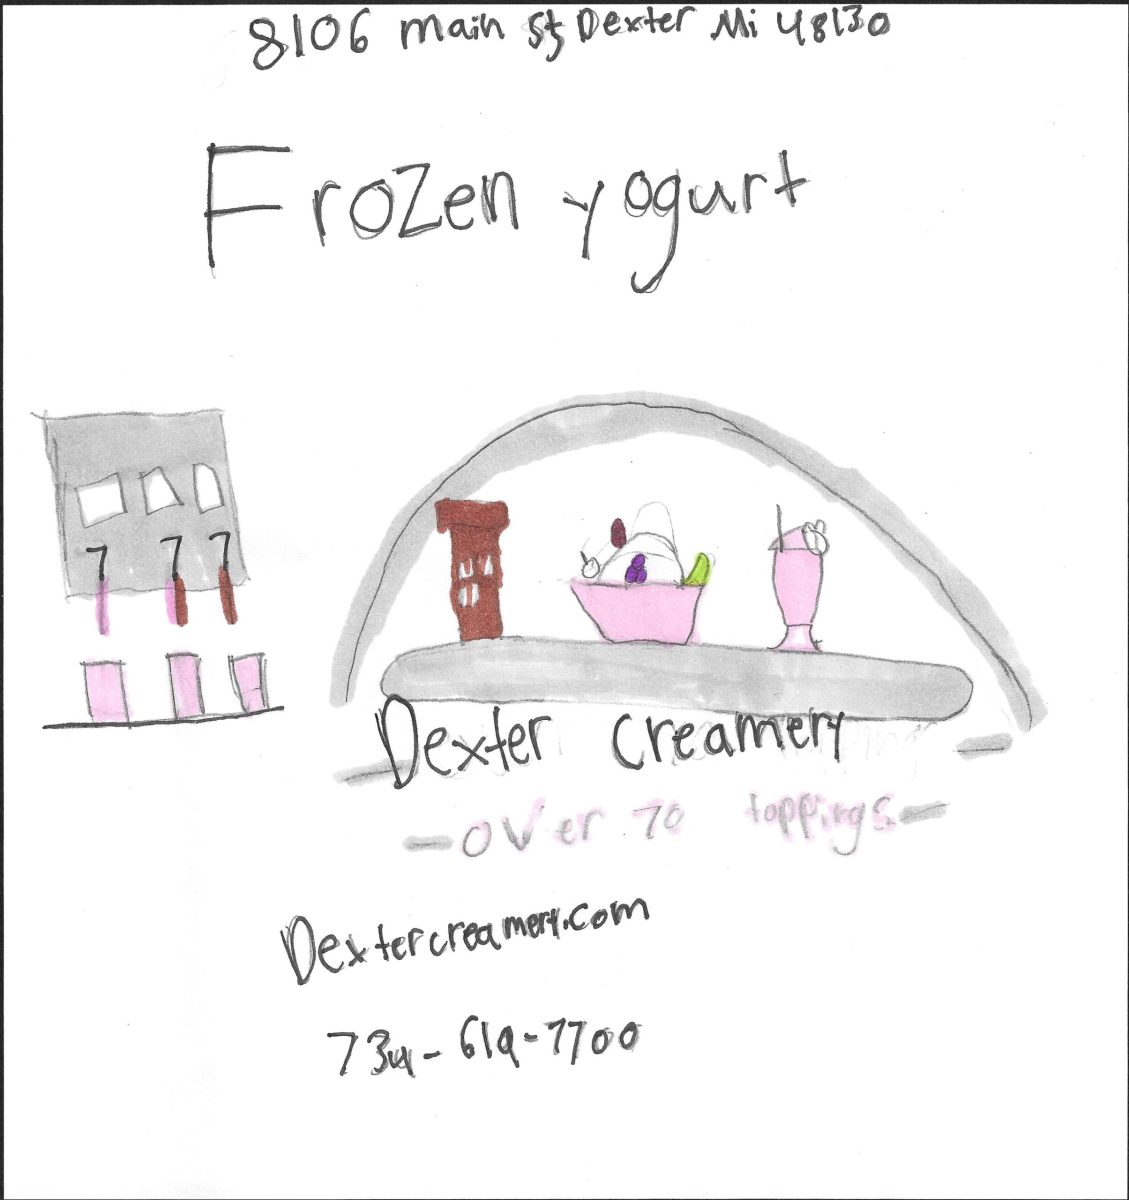 8106 main st Dexter Mi 48130
Frozen yogurt
Dexter Creamery
- over 70 toppings -
Dextercreamery.com
734-619-7700